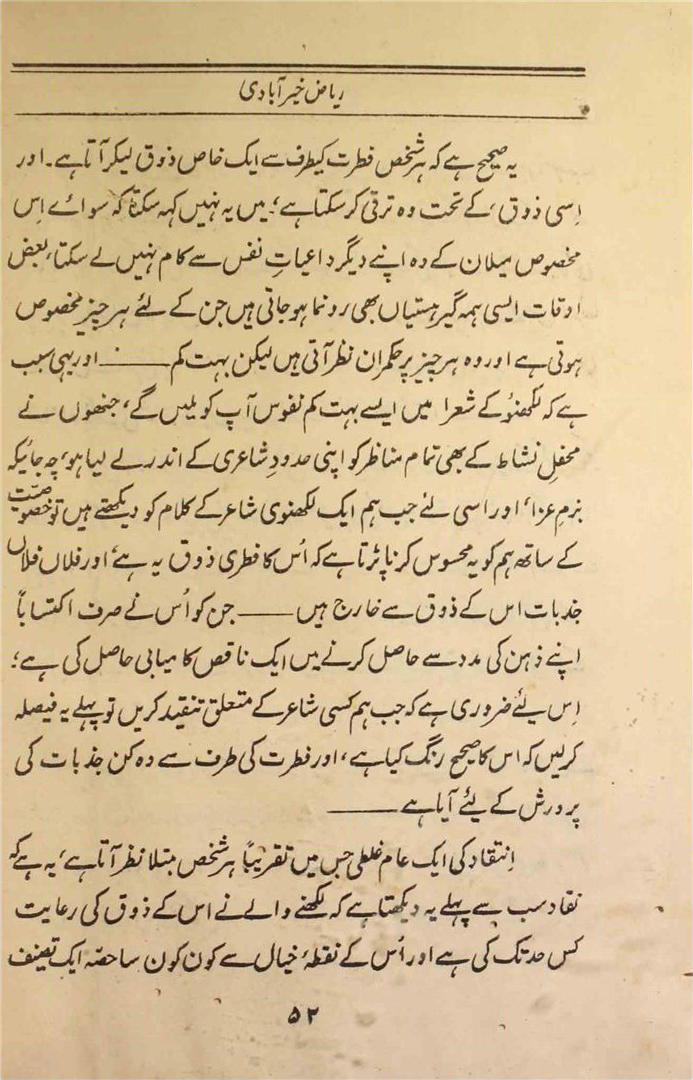 ریاض خیرآبادی
یہ صحیح ہے کہ ہر شخص فطرت کیطرف سے ایک خاص ذوق لیکر آتا ہے۔ اور
اِسی ذوق، کے تحت وہ ترقی کر سکتا ہے؛ میں یہ نہیں کہہ سکتا کہ سوائے اِس
مخصوص میلان کے وہ اپنے دیگر داعیاتِ نفس سے کام نہیں لے سکتا، بعض
اوقات ایسی ہمہ گیر ہستیاں بھی رونما ہو جاتی ہیں جن کے لئے ہر چیز مخصوص
ہوتی ہے اور وہ ہر چیز پر حکمران نظر آتی ہیں لیکن بہت کم ــــــ اور یہی سبب
ہے کہ لکھنؤ کے شعرا میں ایسے بہت کم نفوس آپ کو ملیں گے، جنھوں نے
محفلِ نشاط کے بھی تمام مناظر کو اپنی حدودِ شاعری کے اندر لے لیا ہو، چہ جائیکہ
بزمِ عزا، اور اسی لئے جب ہم ایک لکھنوی شاعر کے کلام کو دیکھتے ہیں تو خصوصیت
کے ساتھ ہم کو یہ محسوس کرنا پڑتا ہے کہ اُس کا فطری ذوق یہ ہے، اور فلاں فلاں
جذبات اس کے ذوق سے خارج ہیں ــــــ جن کو اُس نے صرف اکتساباً
اپنے ذہن کی مدد سے حاصل کرنے میں ایک ناقص کامیابی حاصل کی ہے؛
اِس لیے ضروری ہے کہ جب ہم کسی شاعر کے متعلق تنقید کریں تو پہلے یہ فیصلہ
کرلیں کہ اس کا صحیح رنگ کیا ہے، اور فطرت کی طرف سے وہ کن جذبات کی
پرورش کے لیئے آیا ہے ــــــ
اِنتقاد کی ایک عام غلطی جس میں تقریباً ہر شخص مبتلا نظر آتا ہے، یہ ہے کہ
نقاد سب سے پہلے یہ دیکھتا ہے کہ لکھنے والے نے اس کے ذوق کی رعایت
کس حد تک کی ہے اور اُس کے نقطۂ خیال سے کون کون سا حصّہ ایک تصنیف
۵۲